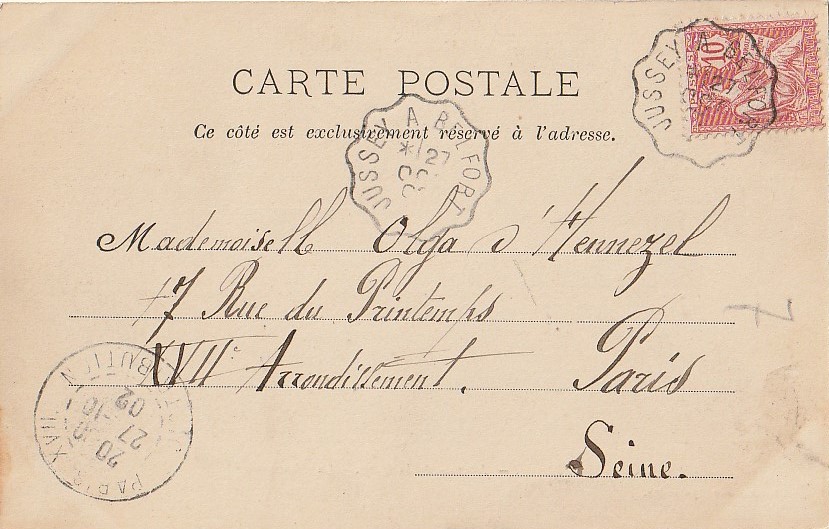 CARTE POSTALE
Ce côté est exclusivement réservé à l'adresse.
10
JUSSEY A BELFORT
27
JUSSEY A BELFORT
* 27
Mademoiselle Olga d'Hennezel
17 Rue du Printemps
XVIIe Arrondissement. Paris
Seine.
PARIS XVII
20
27 -10
02